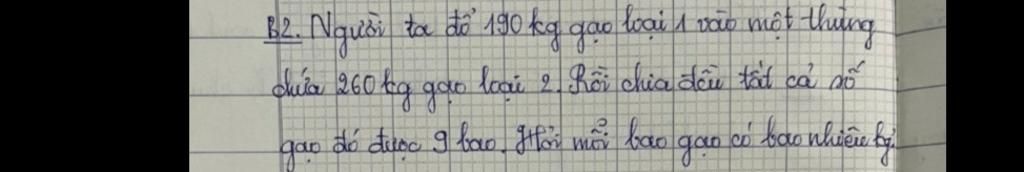 B2. Người ta đổ 190 kg gạo loại 1 vào một thùng
chứa 260 kg gạo loại 2. Rồi chia đều tất cả số
gạo đó được 9 bao. Hỏi mỗi bao gạo có bao nhiêu kg.